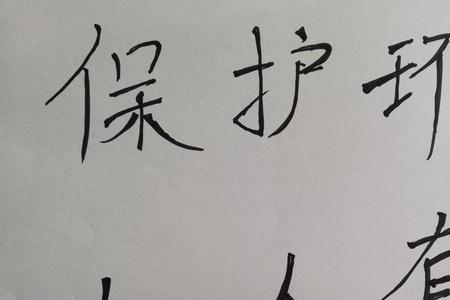 保护环
有